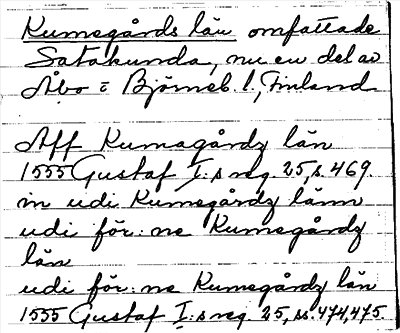 Kumogårds län omfattade
Satakunda, nu en del av
Åbo o Björneb. l., Finland
Aff Kumagårdz län
1555 Gustaf I:s reg. 25, s. 469.
in udi Kumogårdz länn
udi för:ne Kumogårdz
län
udi för:ne Kumogårdz län
1555 Gustaf I:s reg 25, ss. 474, 475.